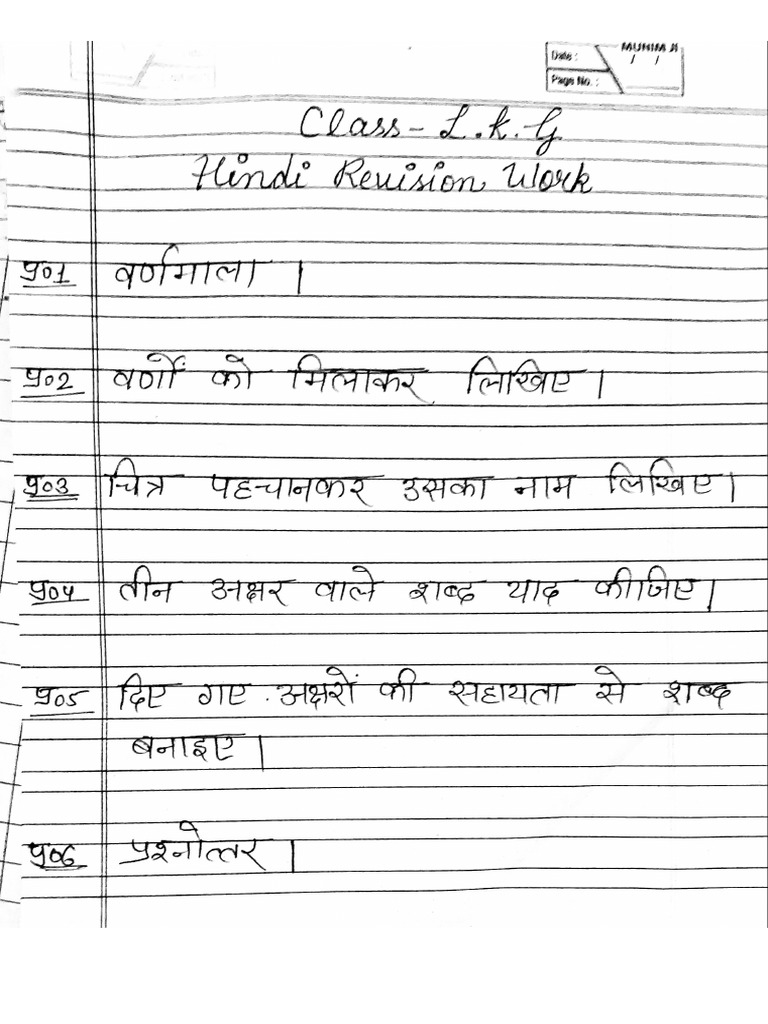 MUNIM JI
Date : / /
Page No. :
Class - L.K.G
Hindi Revision Work
प्र०1 वर्णमाला ।
प्र०2 वर्णों को मिलाकर लिखिए ।
प्र०3 चित्र पहचानकर उसका नाम लिखिए ।
प्र०4 तीन अक्षर वाले शब्द याद कीजिए ।
प्र०5 दिए गए अक्षरों की सहायता से शब्द
बनाइए ।
प्र०6 प्रश्नोत्तर ।